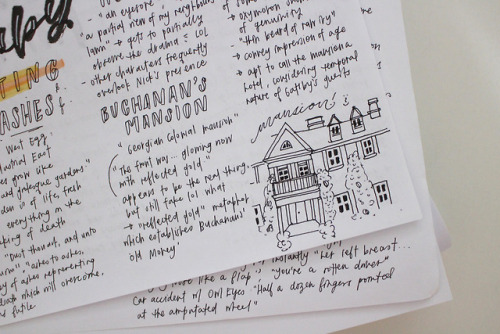 "an eyesore
"a partial view of my neighbor's
lawn" → gets to partially
observe the drama :: LOL
- other characters frequently
overlook Nick's presence
BUCHANAN'S
MANSION
"Georgian Colonial mansion"
"The front was... glowing now
with reflected gold"
appears to be the real thing,
but still fake lol what
→ "reflected gold" metaphor
which establishes Buchanans'
'old Money'
oxymoron
of genuinity
- "thin beard of raw ivy"
→ convey impression of age
→ apt to call the mansion a
hotel, considering temporal
nature of Gatsby's guests
mansions :
TING
ASHES
West Egg
East
grow like
and grotesque gardens"
of life, fresh
everything in the
of death
"Dust thou art, and unto
"ashes to ashes,
of ashes representing
death which will overcome
futile
instantly "her left breast...
like a flap": "you're a rotten driver"
Car accident w/ Owl Eyes "Half a dozen fingers pointed
at the amputated wheel"